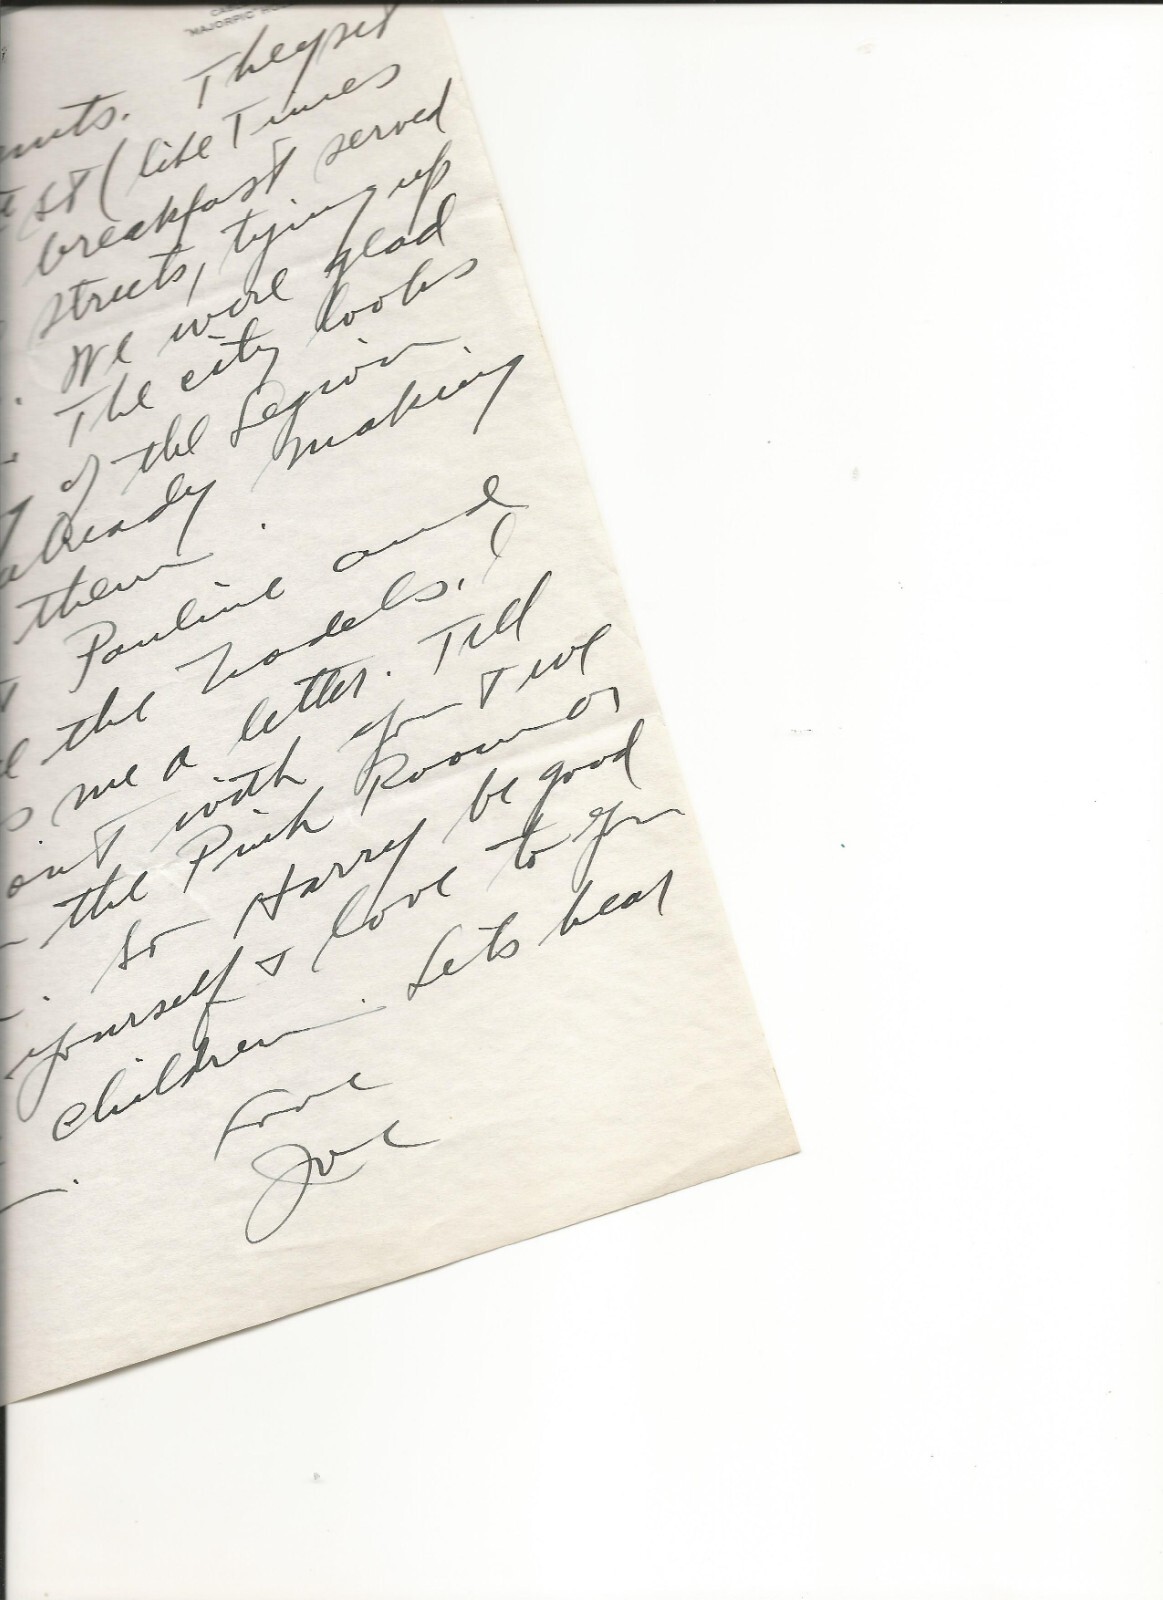 "MAJORPIC"
. They set
St (like Times
breakfast served
streets, tying up
. We were glad
. The city looks
of the Legion
already making
them.
Pauline and
the Nodels. I
me a letter. Tell
with you & we
the Pink Room or
. So Harry be good
yourself & love to you
children. Lets hear
.
Love
Joe